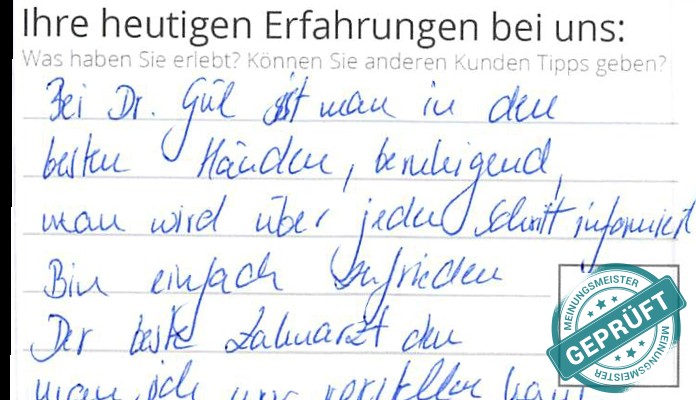 Ihre heutigen Erfahrungen bei uns:
Was haben Sie erlebt? Können Sie anderen Kunden Tipps geben?
Bei Dr. Gül ist man in den
besten Händen, beruhigend,
man wird über jeden Schritt informiert
Bin einfach zufrieden
Der beste Zahnarzt den
man sich nur vorstellen kann
MEINUNGSMEISTER
GEPRÜFT
MEINUNGSMEISTER